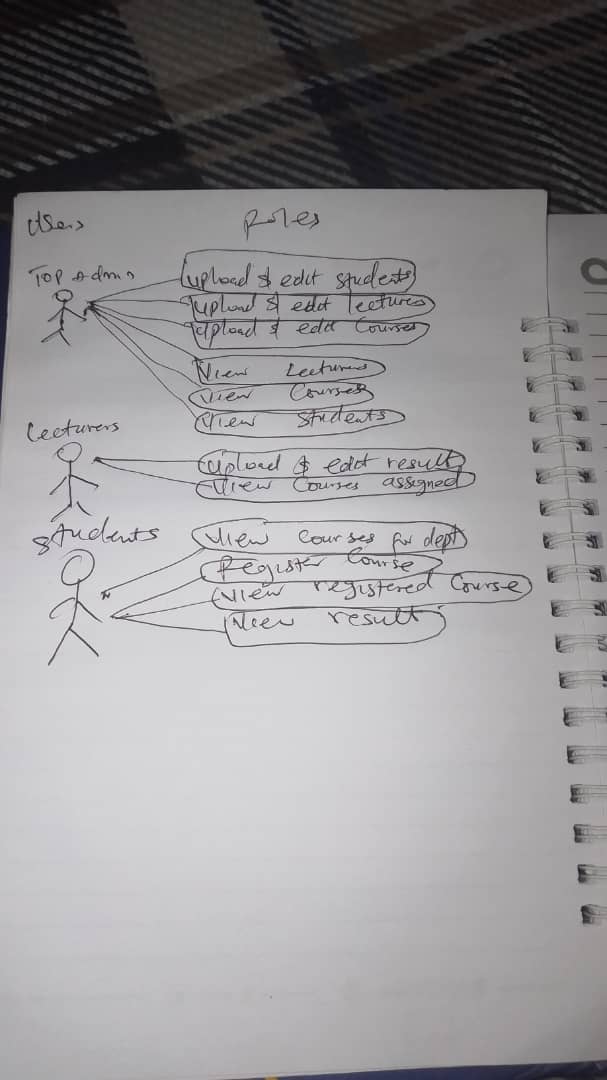 Users Roles
Top Admin
upload & edit students
upload & edit lectures
upload & edit Courses
View Lectures
View Courses
View students
lecturers
upload & edit result
View Courses assigned
students
View courses for dept
Register Course
View registered Course
View result